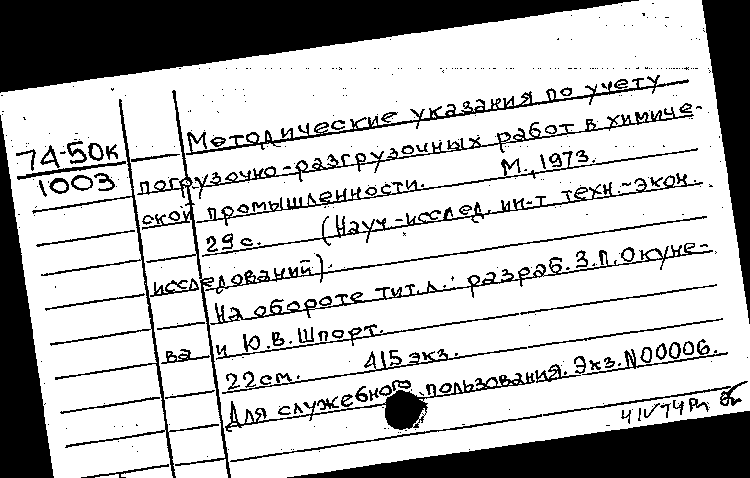 74-50к
1003
Методические указания по учету
погрузочно-разгрузочных работ в химиче-
ской промышленности. М., 1973.
29 с. (Науч-исслед. ин-т техн.-экон.
исследований).
На обороте тит.л.: разраб. З.П. Окуне-
ва и Ю.В. Шпорт.
22 см. 415 экз.
Для служебного пользования. Экз. N00006.
4 IV 74